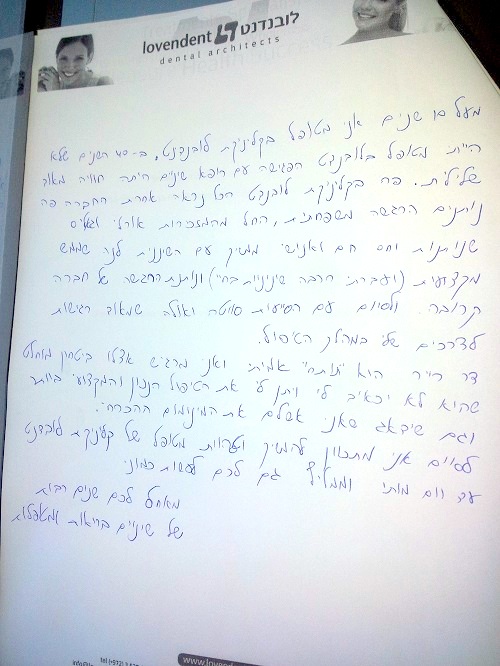 lovendent לובנדנט
dental architects
מעל 10 שנים אני מטופל בקליניקת לובנדנט, ב-40 השנים שלא
הייתי מטופל בלובנדנט הפגישה עם רופא שיניים היתה חוויה מאוד
שלילית. פה בקליניקת לובנדנט הכל נראה אחרת החברה פה
נותנים הרגשה משפחתית, החל מהמזכירות אורלי
שנותנות יחס חם ואנושי ממשיך עם השיננית לנה שממש
מקצועית (ועברתי הרבה שינניות בחיי) ונותנת הרגשה של חברה
קרובה. ולסיום עם הסייעות סווטה ואולה שמאוד רגישות
לצרכים שלי במהלך הטיפול.
דר מייר הוא "תותח" אמיתי ואני מרגיש אצלו ביטחון מוחלט
שהוא לא יכאיב לי ויתן לי את הטיפול הנכון והמקצועי ביותר
וגם שידאג שאני אשלם את המינימום ההכרחי.
לסיום אני מתכוון להמשיך ולהיות מטופל של קליניקת לובנדנט
עד יום מותי וממליץ גם לכם לעשות כמוני.
מאחל לכם שנים רבות
של שיניים בריאות ומטופלות
www.lovend